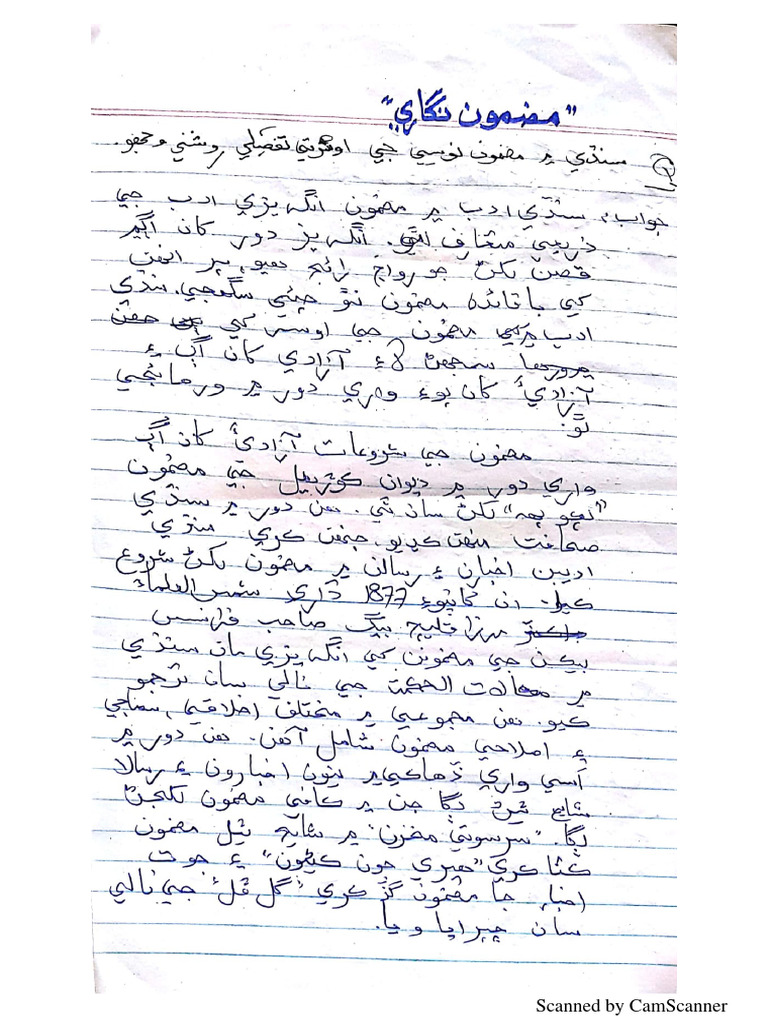 "مضمون نگاري"
سنڌي ۾ مضمون نويسي جي اوسر تي تفصيلي روشني وجھو.
جواب: سنڌي ادب ۾ مضمون انگريزي ادب جي
ذريعي متعارف ٿيو. انگريز دور کان اڳ ۾
قصن لکڻ جو رواج رائج هيو، پر انهن
کي باقائده مضمون نٿو چئي سگهجي. سنڌي
ادب ۾ مضمون جي اوسر کي
سمجهڻ لاءِ آزادي کان اڳ ۽
آزاديءَ کان پوءِ واري دور ۾ ورهائجي
ٿو.
مضمون جي شروعات آزاديءَ کان اڳ
واري دور ۾ ديوان ڪوڙيمل جي مضمون
"پڪو پهه" لکڻ سان ٿي. هن دور ۾ سنڌي
صحافت ڪيو، جنهن ڪري سنڌي
اديبن اخبارن ۽ رسالن ۾ مضمون لکڻ شروع
ڪيا. ان کانپوءِ 1877 ڌاري شمس العلماءُ
مرزا قليچ بيگ صاحب فرانسس
بيڪن جي مضمونن کي انگريزي مان سنڌي
۾ مقالات الحڪمة جي نالي سان ترجمو
ڪيو. هن مجموعي ۾ مختلف اخلاقي، سماجي
۽ اصلاحي مضمون شامل آهن. هن دور ۾
اسي واري ڏهاڪي ۾ ٻيون اخبارون ۽ رسالا
شايع ٿيڻ لڳا جن ۾ ڪافي مضمون لکجڻ
لڳا. "سرسوتي مخزن" ۾ شايع ٿيل مضمون
گڏ ڪري "هيري جون ڪڻيون" ۽ جوت
اخبار جا مضمون گڏ ڪري "گل ڦل" جي نالي
سان ڇپرايا ويا.
Scanned by CamScanner